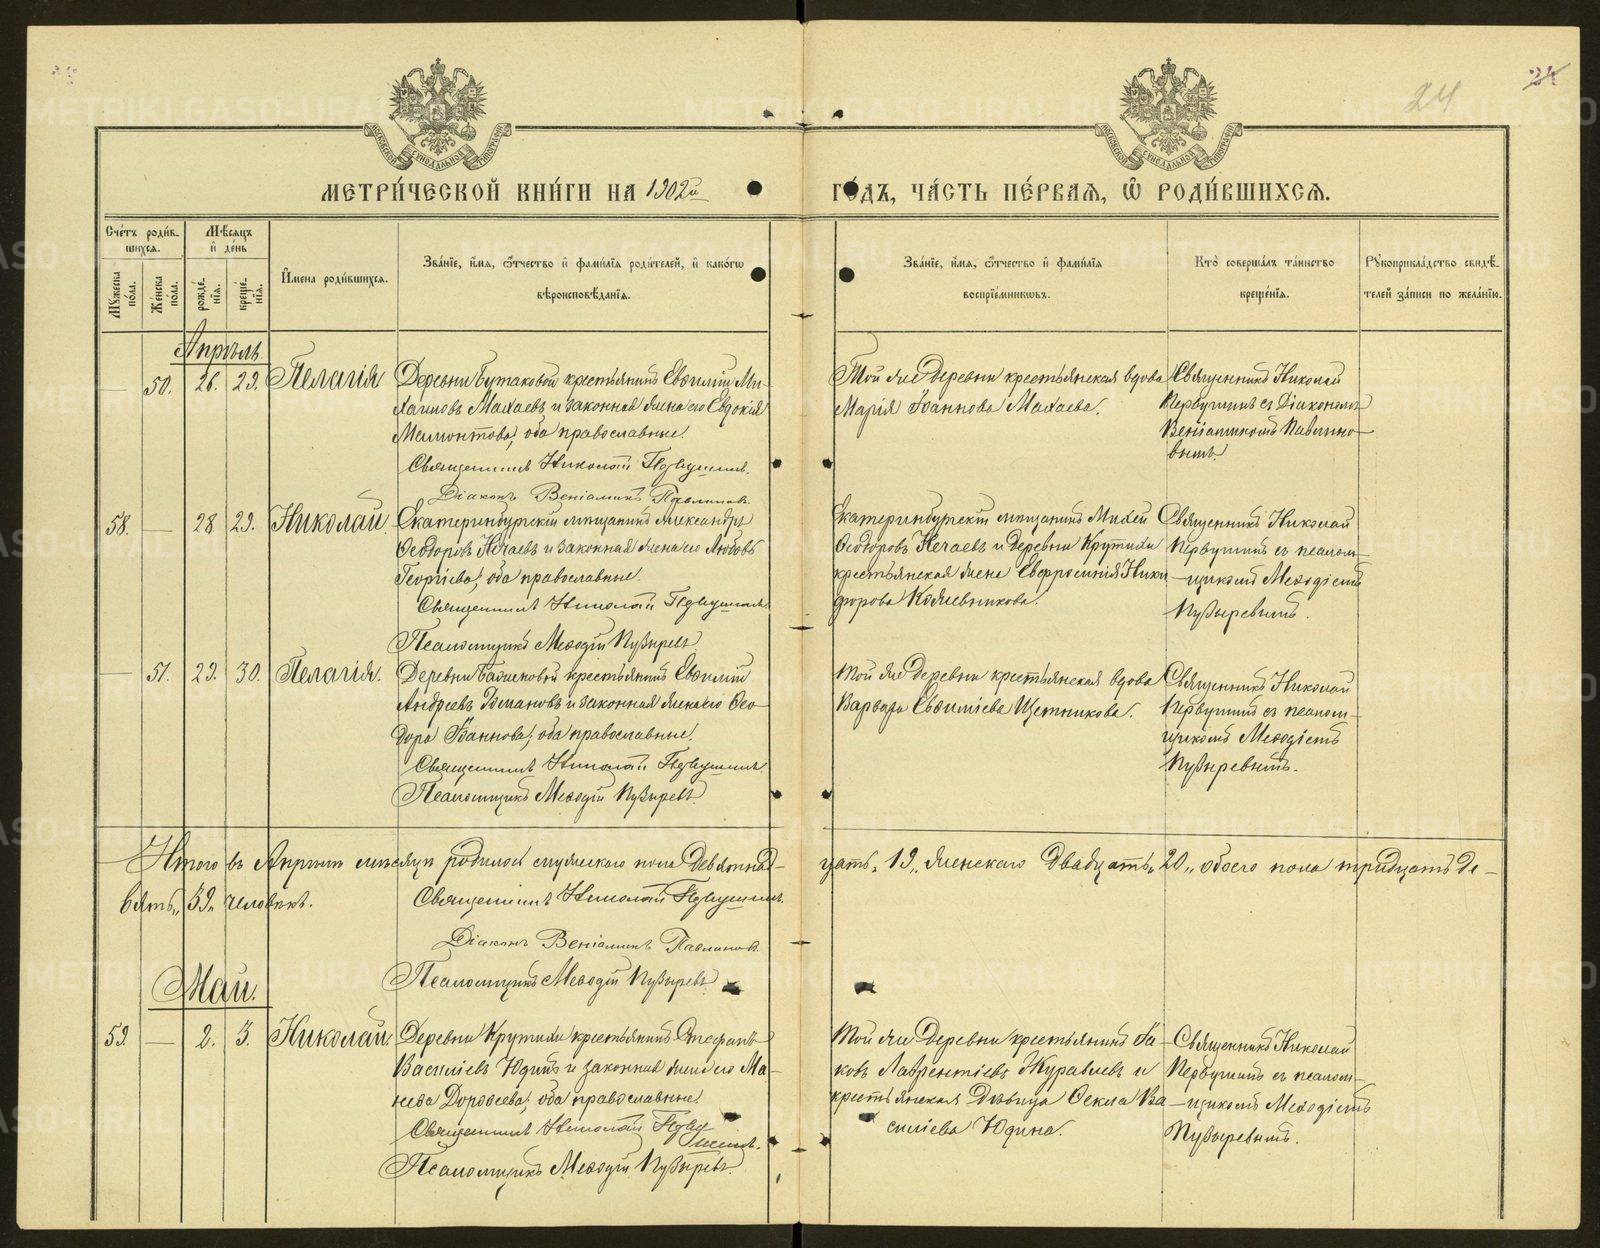 24
МЕТРИ́ЧЕСКОЙ КНИ́ГИ НА 1902й ГО́ДЪ, ЧА́СТЬ ПЕ́РВАЯ, Ѿ РОДИ́ВШИХСЯ.
Сче́тъ роди́вшихся.
Му́жеска по́ла.
Же́нска по́ла.
Мѣ́сяцъ и҆ де́нь
рожде́нїя.
креще́нїя.
И҆мена̀ роди́вшихся.
Зва́нїе, и҆́мя, ѻ҆́тчество и҆ фами́лїя роди́телей, и҆ како́гѡ
вѣроисповѣ́данїя.
Зва́нїе, и҆́мя, ѻ҆́тчество и҆ фами́лїя
воспрїе́мникѡвъ.
Кто̀ соверша́лъ та́инство
креще́нїя.
Рꙋкоприкла́дство свидѣ́-
телей за́писи по жела́нїю.
Апрѣль
— 50. 26. 29. Пелагія
Деревни Бутаковой крестьянинъ Евѳимій Ми-
хаиловъ Махаевъ и законная жена его Евдокія
Мамонтова, оба православные.
Священникъ Николай Первушинъ.
Діаконъ Веніаминъ Павлиновъ.
Той же деревни крестьянская вдова
Марія Іоаннова Махаева.
Священникъ Николай
Первушинъ съ Діакономъ
Веніаминомъ Павлино-
вымъ.
58. — 28 29. Николай
Екатеринбургскій мѣщанинъ Александръ
Ѳеодоровъ Нечаевъ и законная жена его Любовь
Георгіева, оба православные.
Священникъ Николай Первушинъ.
Псаломщикъ Меѳодій Пузыревъ.
Екатеринбургскій мѣщанинъ Михей
Ѳеодоровъ Нечаевъ и деревни Крутихи
крестьянская жена Евфросинія Ники-
форова Кожевникова.
Священникъ Николай
Первушинъ съ псалом-
щикомъ Меѳодіемъ
Пузыревымъ.
— 51. 29. 30. Пелагія.
Деревни крестьянинъ Евѳимій
Андреевъ Романовъ и законная жена его Ѳео-
дора Іоаннова, оба православные.
Священникъ Николай Первушинъ.
Псаломщикъ Меѳодій Пузыревъ.
Той же деревни крестьянская вдова
Варвара Евѳиміева Щетникова.
Священникъ Николай
Первушинъ съ псалом-
щикомъ Меѳодіемъ
Пузыревымъ.
Итого въ Апрѣлѣ мѣсяцѣ родилось мужескаго пола девятнад-
цать „19„ женскаго двадцать „20„ обоего пола тридцать де-
вять „39„ человѣкъ.
Священникъ Николай Первушинъ.
Діаконъ Веніаминъ Павлиновъ.
Псаломщикъ Меѳодій Пузыревъ
Май.
59. — 2. 3. Николай
Деревни Крутихи крестьянинъ Стефанъ
Василіевъ Юдинъ и законная жена его Ма-
нева Дороѳеева, оба православные.
Священникъ Николай Перву-
шинъ.
Псаломщикъ Меѳодій Пузыревъ.
Той же деревни крестьянинъ Іа-
ковъ Лаврентіевъ Журавлевъ и
крестьянская дѣвица Ѳекла Ва-
силіева Юдина.
Священникъ Николай
Первушинъ съ псалом-
щикомъ Меѳодіемъ
Пузыревымъ.
METRIKI.GASO-URAL.RU